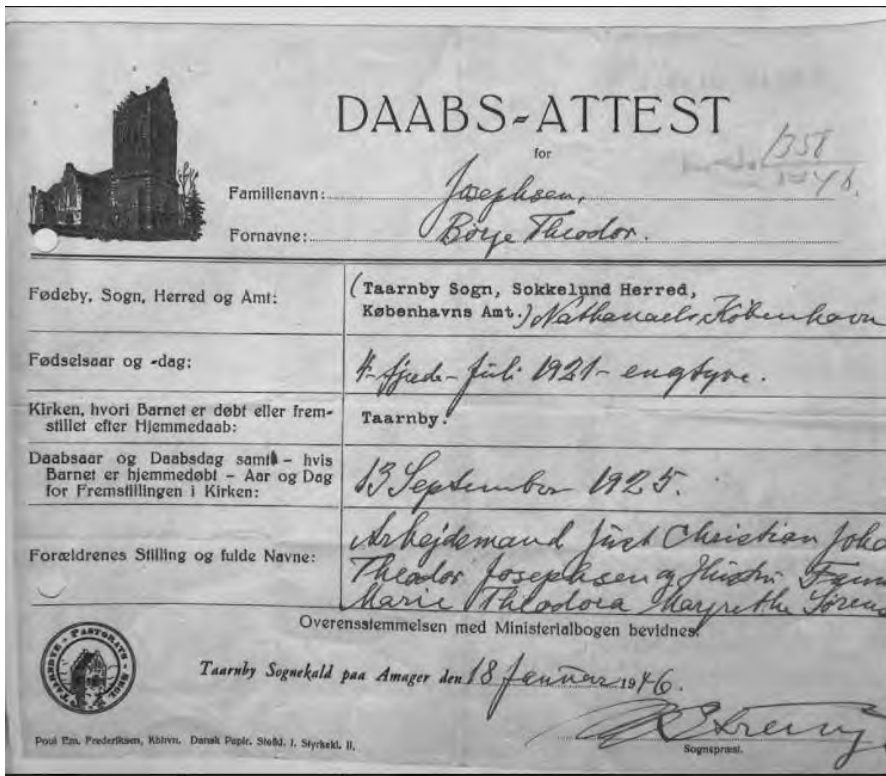 DAABS-ATTEST
for
1358
Familienavn: Josephsen,
Fornavne: Börje Theodor.
Fødeby, Sogn, Herred og Amt:
(Taarnby Sogn, Sokkelund Herred,
Københavns Amt.) Nathanaels, København
Fødselsaar og -dag:
4- fjrede - Juli 1921 - enogtyve.
Kirken, hvori Barnet er døbt eller frem-
stillet efter Hjemmedaab:
Taarnby.
Daabsaar og Daabsdag samt - hvis
Barnet er hjemmedøbt - Aar og Dag
for Fremstillingen i Kirken:
13 September 1925.
Forældrenes Stilling og fulde Navne:
Arbejdsmand Just Christian Joha
Theodor Josephsen og Hustru Fann
Marie Theodora Margrethe Sørens
Overensstemmelsen med Ministerialbogen bevidnes.
TAARNBYE - PASTORATS - SEGL
Taarnby Sognekald paa Amager den 18 Januar 1946.
Sognepræst.
Poul Em. Frederiksen, Kbhvn. Dansk Papir. Stofkl. I. Styrkekl. II.